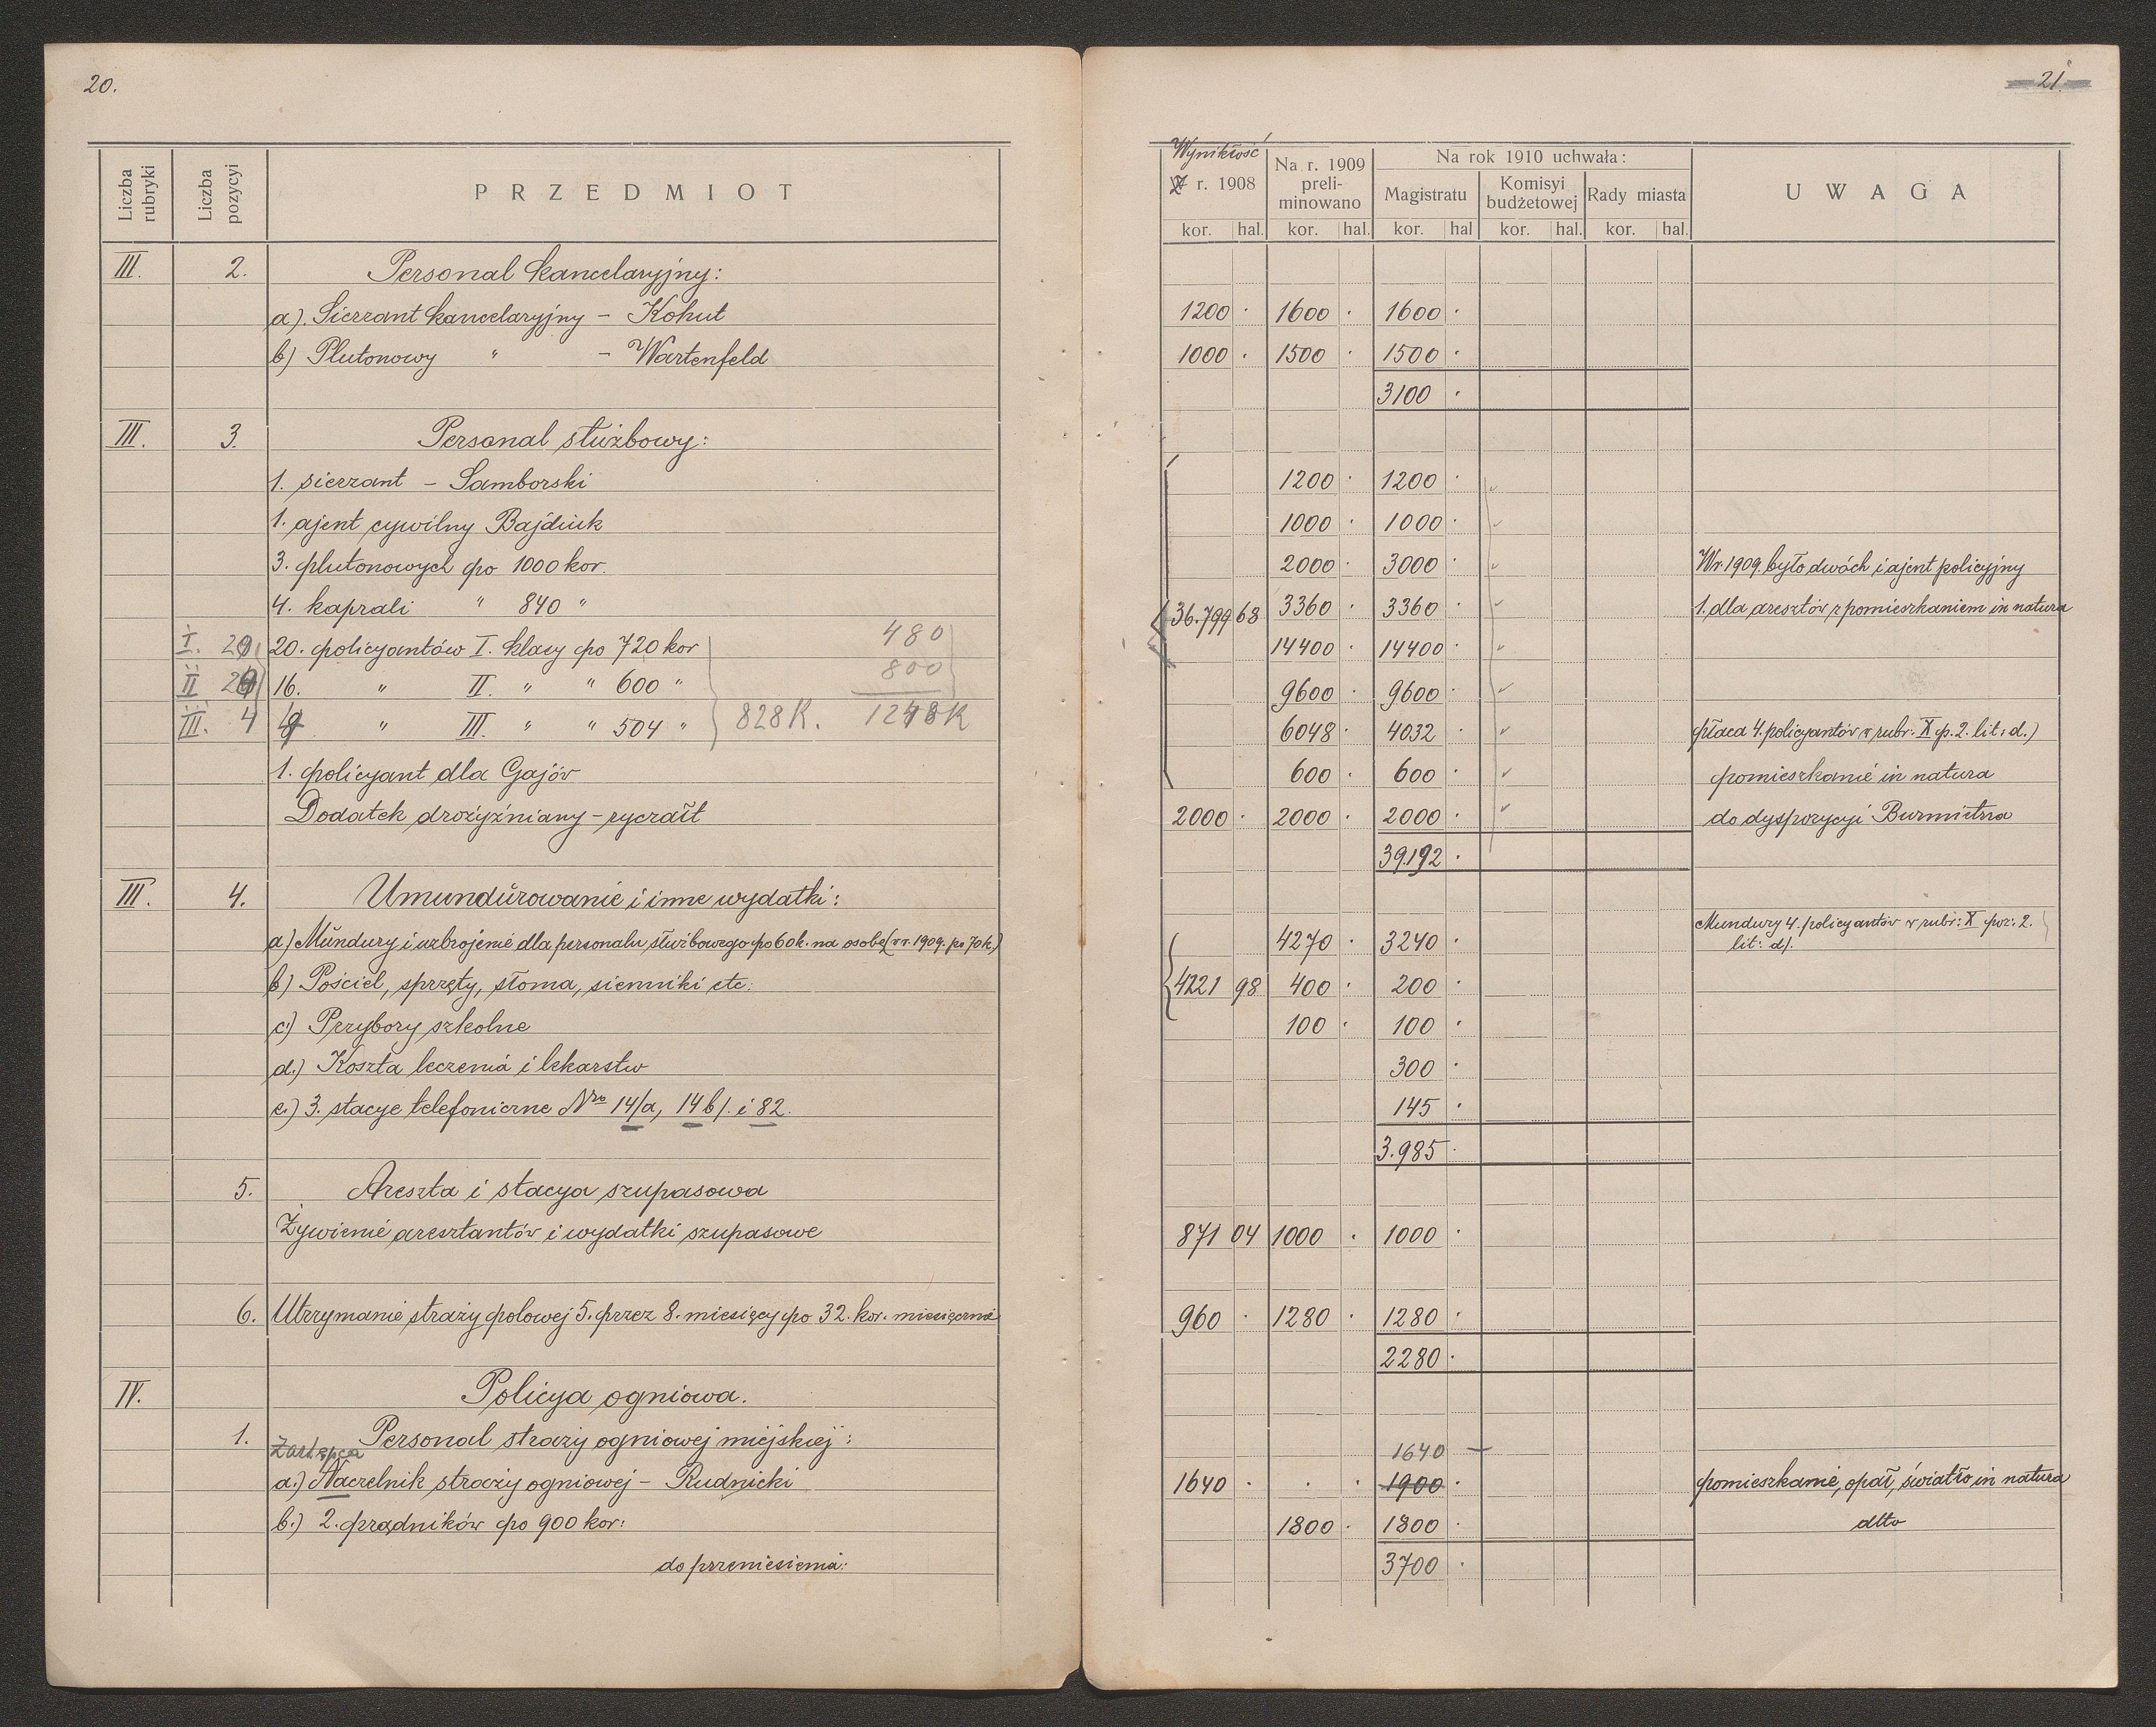 20.
Liczba rubryki
Liczba pozycyi
PRZEDMIOT
III. 2. Personal kancelaryjny:
a). Sierzant kancelaryjny – Kohut
b) Plutonowy " – Wartenfeld
III. 3. Personal służbowy:
1. sierzant – Samborski
1. ajent cywilny Bajdiuk
3. plutonowych po 1000 kor.
4. kaprali " 840 "
I. 20. policyantów I. klasy po 720 kor 480
II 16. " II. " " 600 " 800
III. 4 " III. " " 504 " 828 K. 1248 K
1. policyant dla Gajów
Dodatek drożyźniany – ryczałt
III. 4. Umundurowanie i inne wydatki:
a) Mundury i uzbrojenie dla personalu służbowego po 60 k. na osobę (w r. 1909. po 70 k.)
b) Pościel, sprzęty, słoma, sienniki etc.
c) Przybory szkolne
d.) Koszta leczenia i lekarstw
e.) 3. stacye telefoniczne Nro 14/a, 14 b/. i 82.
5. Areszta i stacya szupasowa
Żywienie aresztantów i wydatki szupasowe
6. Utrzymanie straży polowej 5. przez 8. miesięcy po 32. kor. miesięcznie
IV. Policya ogniowa.
1. Personal straży ogniowej miejskiej:
Zastępca
a.) Naczelnik straży ogniowej – Rudnicki
b.) 2. prądników po 900 kor:
do przeniesienia:
21.
Wynikłość
Z r. 1908
Na r. 1909 preli-
minowano
Na rok 1910 uchwała:
Magistratu
Komisyi budżetowej
Rady miasta
UWAGA
kor. hal. kor. hal. kor. hal kor. hal. kor. hal.
1200 · 1600 · 1600 ·
1000 · 1500 · 1500 ·
3100 ·
1200 · 1200 ·
1000 · 1000 ·
2000 · 3000 · W r. 1909. było dwóch i ajent policyjny
36.799 68 3360 · 3360 · 1. dla aresztów z pomieszkaniem in natura
14400 · 14400 ·
9600 · 9600 ·
6048 · 4032 · płaca 4. policyantów w rubr: X p. 2. lit: d.)
600 · 600 · pomieszkanie in natura
2000 · 2000 · 2000 · do dyspozycyi Burmistrza
39.192 ·
Mundury 4. policyantów w rubr: X poz: 2.
lit: d/.
4270 · 3240 ·
4221 98 400 · 200 ·
100 · 100 ·
300 ·
145 ·
3.985 ·
871 04 1000 · 1000 ·
960 · 1280 · 1280 ·
2280 ·
1640 —
1640 · · · 1900 · pomieszkanie, opał, światło in natura
1800 · 1800 · dtto
3700 ·